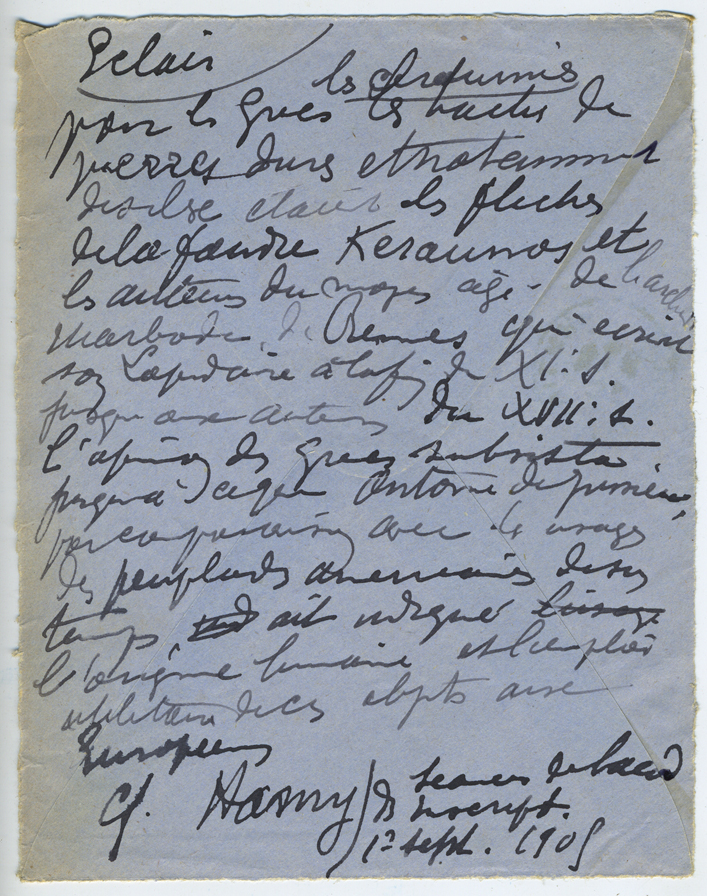 Eclair
les ceraunies
pour les Grecs les haches de
pierres dures et notamment
de silse etaient les fleches
de la foudre Keraunos et
les auteurs du moyen age - de
Marbode de Rennes qui ecrivit
son Lapidaire à la fin du XI: s.
jusqu aux auteurs du XVII: s.
l'opinion des Grecs subsista
jusqu'à Jaques Antoine de Jussieu,
par comparaison avec les usages
des peuplades americaines de son
temps ait indiqué l'usage
l'origine humaine et l'emploi
utilitaire de ces objets aux
Europeens
cf. Hamy / Seances de l'acad
des Inscript.
1er sept. 1905